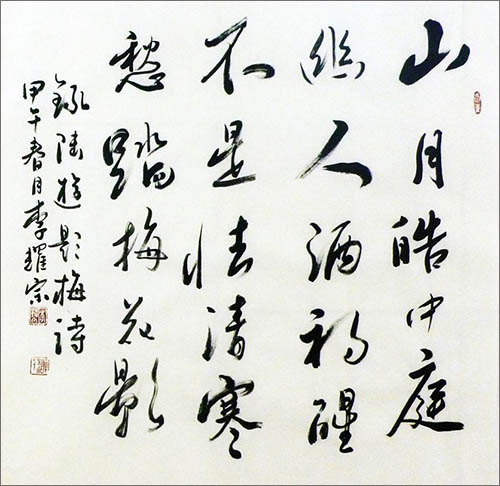 山月皓中庭
幽人酒初醒
不是怯清寒
愁踏梅花影
錄陸游題梅詩
甲午春月李耀宗